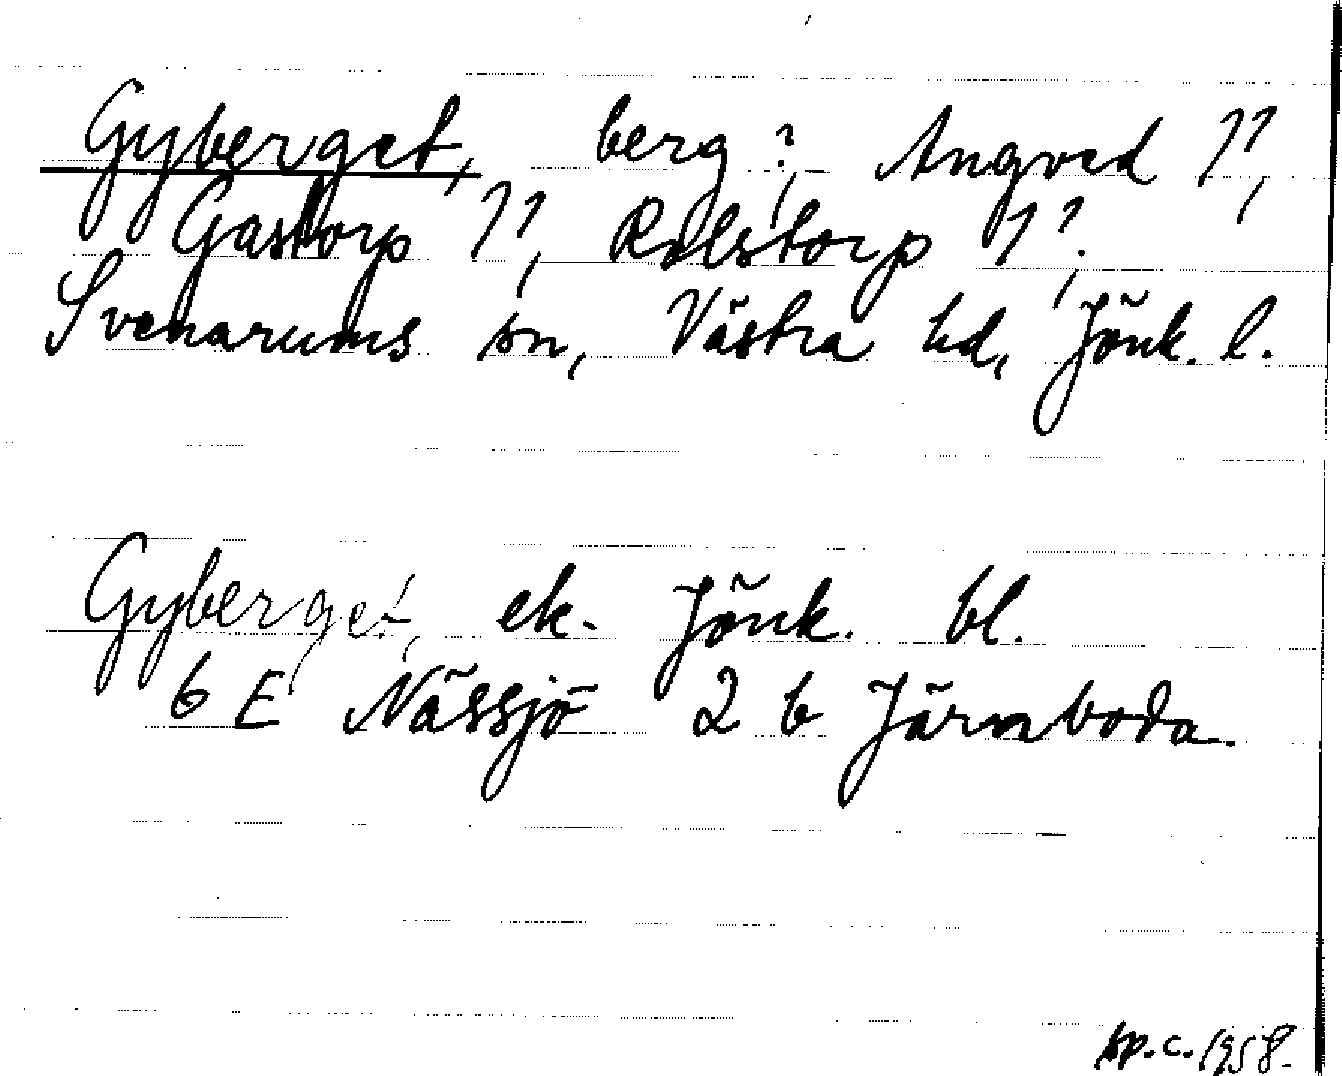 Gyberget, berg?, Angved ??,
Gastorp ??, Rolstorp ??,
Svenarums sn, Västra hd, Jönk. l.
Gyberget, ek. Jönk. bl.
6 E Nässjö 2 b Järnboda.
sp.c. 1958.